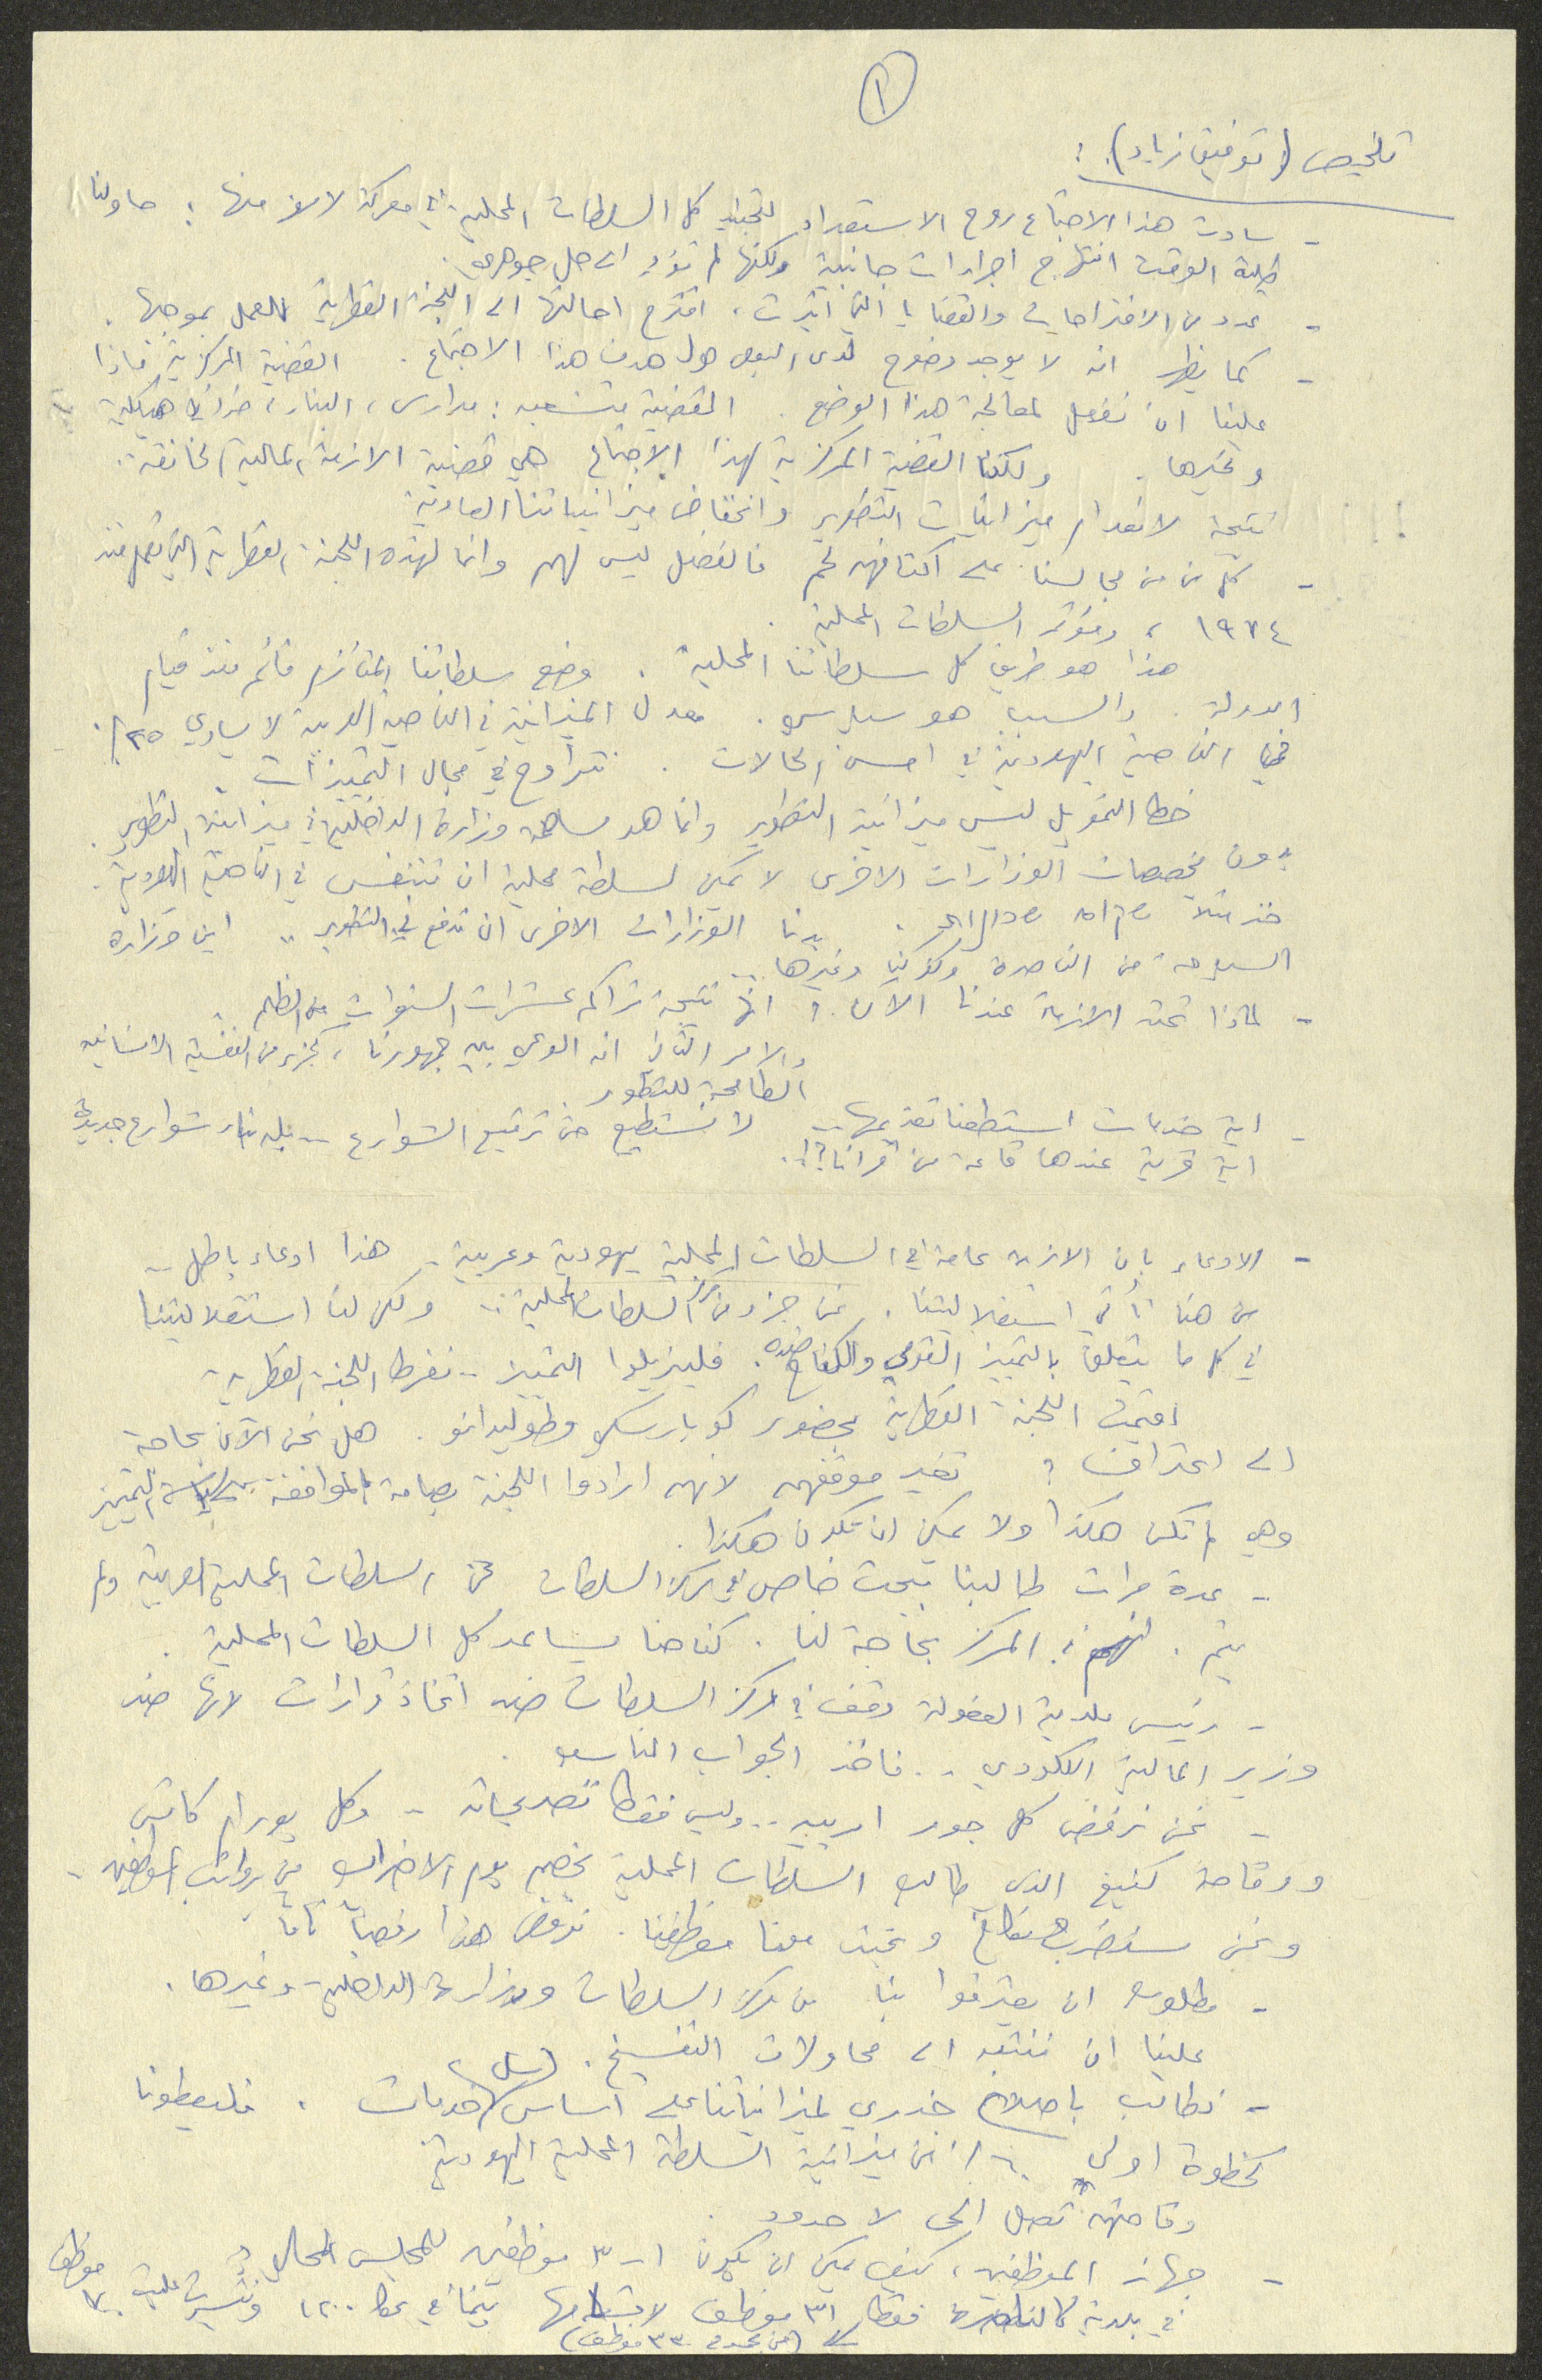 ١
تلخيص (توفيق زياد):
- سادت هذا الاجتماع روح الاستعداد لتجنيد كل السلطات المحلية في معركة لا مفر منها؛ حاولنا
طيلة الوقت انتهاج اجراءات جانبية ولكنها لم تؤد الى حل جوهري.
- عدد من الاقتراحات والقضايا التي اثيرت، اقترح احالتها الى اللجنة القطرية للعمل بموجبها.
- كما يظهر انه لا يوجد وضوح لدى البعض حول هدف هذا الاجتماع. القضية المركزية ماذا
علينا ان نفعل لمعالجة هذا الوضع. القضية متشعبه: مدارس، البناء، خرائط هيكلية
وغيرها. ولكن القضية المركزية لهذا الاجتماع هي قضية الازمة المالية الخانقة..
نتيجة لانعدام ميزانيات التطوير وانخفاض ميزانياتنا العادية
- كل من من مجالسنا على اكتافهم لحم فالفضل ليس لهم وانما لهذه اللجنة القطرية التي تعمل منذ
١٩٧٤، ومؤتمر السلطات المحلية.
هذا هو طريق كل سلطاتنا المحلية. وضع سلطاتنا المتأزم قائم منذ قيام
الدولة. والسبب هو سياسي. معدل الميزانية في الناحية العربية لا يساوي ٢٥٪
من الناحية اليهودية في احسن الحالات. نتراوح في مجال التمييزات.
خطا التمويل ليس ميزانية التطوير وانما هو مساهمة وزارة الداخلية في ميزانية التطوير.
بدون مخصصات الوزارات الاخرى لا يمكن لسلطة محلية ان تتنفس في الناحية اليهودية.
خذ مثلا . بدنا الوزارات الاخرى ان تدفع في التطوير.. اين وزارة
السياحة من الناصرة وكفركنا وغيرها..
- لماذا تحتد الازمة عندنا الآن؟ انها نتيجة تراكم عشرات السنوات من الظلم.
والامر الثاني انه الوعي بين جمهورنا، كجزء من النفسية الانسانيه
الطامحة للتطور
- اية خدمات استطعنا تقديمها.. لا نستطيع حتى ترقيع الشوارع.. بله بناء شوارع جديدة
اية قرية عندها قاعة من قرانا؟!.
- الادعاء بان الازمة عامة في السلطات المحلية يهودية وعربية. هذا ادعاء باطل..
من هنا تأتي استقلاليتنا. نحن جزء من مركز السلطات المحلية.. ولكن لنا استقلاليتنا
في كل ما يتعلق بالتمييز القومي والكفاح ضده. فليزيلوا التمييز.. نفرط اللجنة القطرية
اقيمت اللجنة القطرية بحضور كوبارسكي وطوليدانو. هل نحن الآن بحاجة
الى اعتراف؟ تغير موقفهم لانهم ارادوا اللجنة بصامة الموافقة على سياسة التمييز
وهي لم تكن هكذا ولا يمكن ان تكون هكذا.
- عدة مرات طالبنا ببحث خاص في مركز السلطات عن السلطات المحلية العربية ولم
يتم. المركز بحاجة لنا. كفاحنا يساعد كل السلطات المحلية.
- رئيس بلدية العفولة وقف في مركز السلطات ضد اتخاذ قرارات لانها ضد
وزير المالية الليكودي.. فاخذ الجواب المناسب.
- نحن نرفض كل جور اربيب.. وليس فقط تصريحاته.. وكل يورام كاتس
ووقاحة كنيغ الذي طالب السلطات المحلية بخصم يوم الاضراب من رواتب الموظفين..
ونحن سنضرب ونجند معنا موظفينا. نرفض هذا رفضا تاما.
- مطلوب ان يعترفوا بنا من مركز السلطات ووزارة الداخلية وغيرها.
علينا ان ننتبه الى محاولات التفسيخ.
- نطالب باصلاح جذري لميزانياتنا على اساس (سل) خدمات. فليعطونا
كخطوة اولى ٦٠٪ من ميزانية السلطة المحلية اليهودية
وقاحتهم تصل الى لا حدود.
- جهاز الموظفين، كيف يمكن ان يكون ١-٣ موظفين للمجلس المحلي؟
في بلدية كالناصرة فقط ٣١ موظف لاقسامها بينما في عكا ١٢٠٠ ونتسيرت عيليت ٧٠٠ موظف
(من مجموع ٣٣٠ موظف)